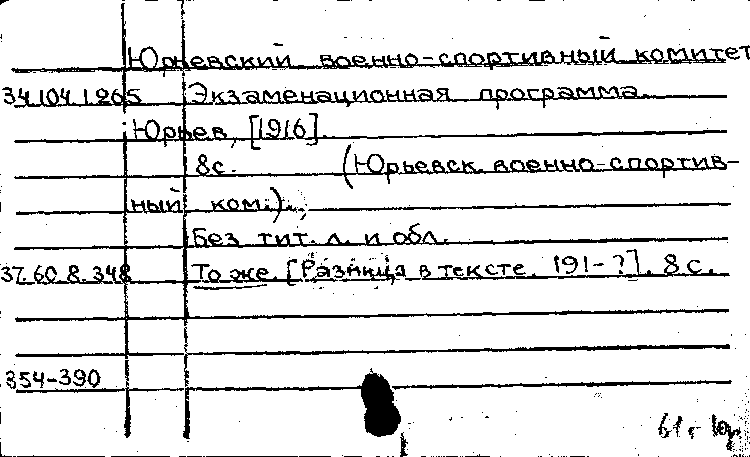 Юрьевский военно-спортивный комитет
34.104.1.265 Экзаменационная программа.
Юрьев, [1916].
8с. (Юрьевск. военно-спортив-
ный ком.).
Без тит. л. и обл.
37.60.8.348 То же. [Разница в тексте. 191-?]. 8 с.
354-390
61г.